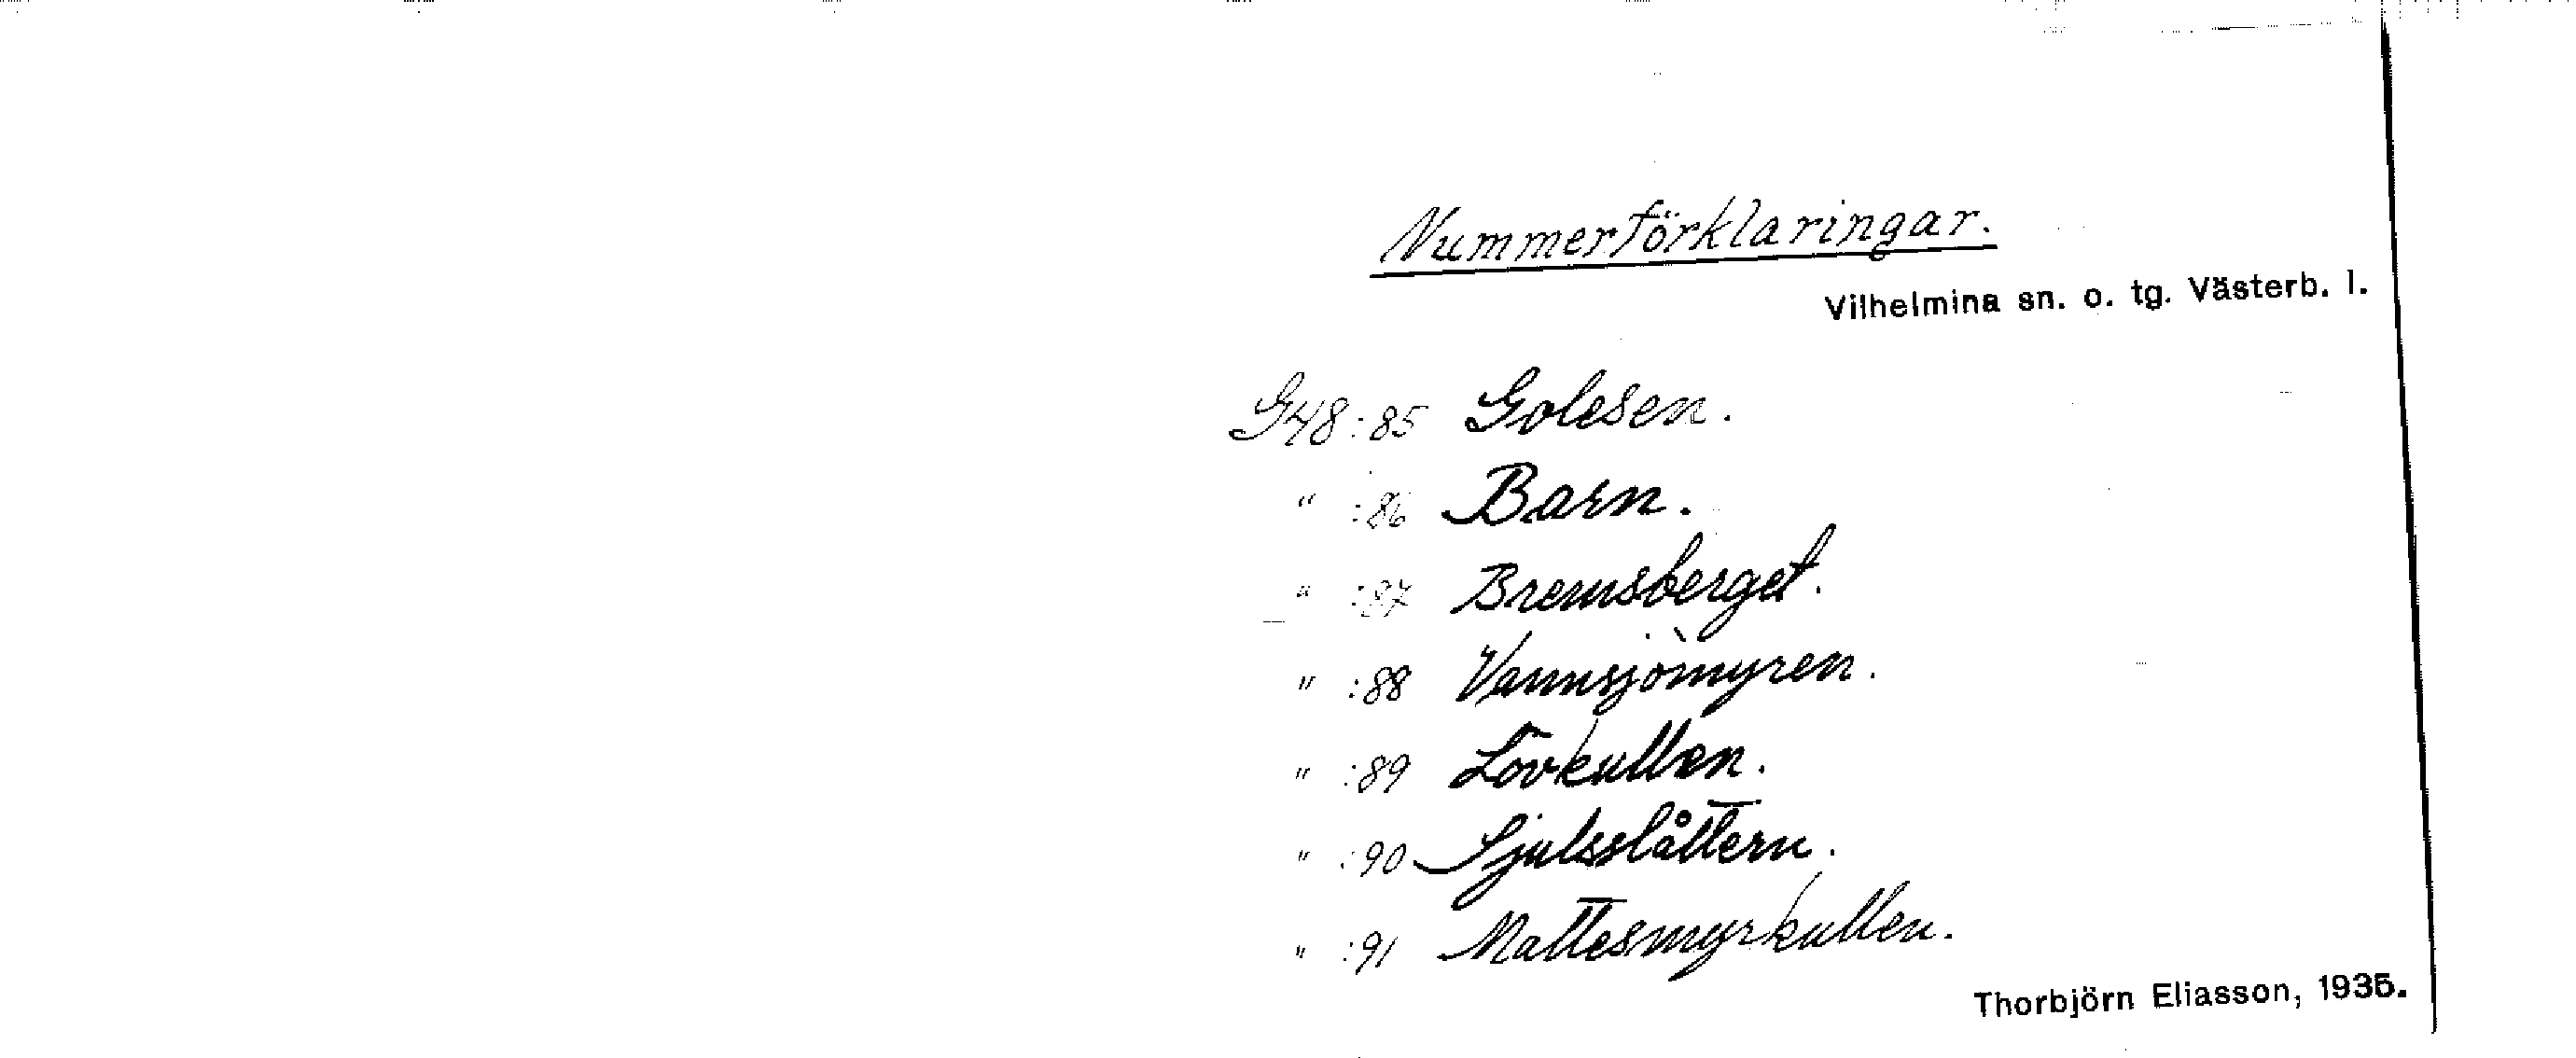 Nummerförklaringar.
Vilhelmina sn. o. tg. Västerb. l.
G48:85 Golesen.
" :86 Barn.
" :87 Bremsberget.
" :88 Vannsjömyren.
" :89 Lövkullen.
" :90 Sjulsslåttern.
" :91 Mattesmyrkullen.
Thorbjörn Eliasson, 1935.